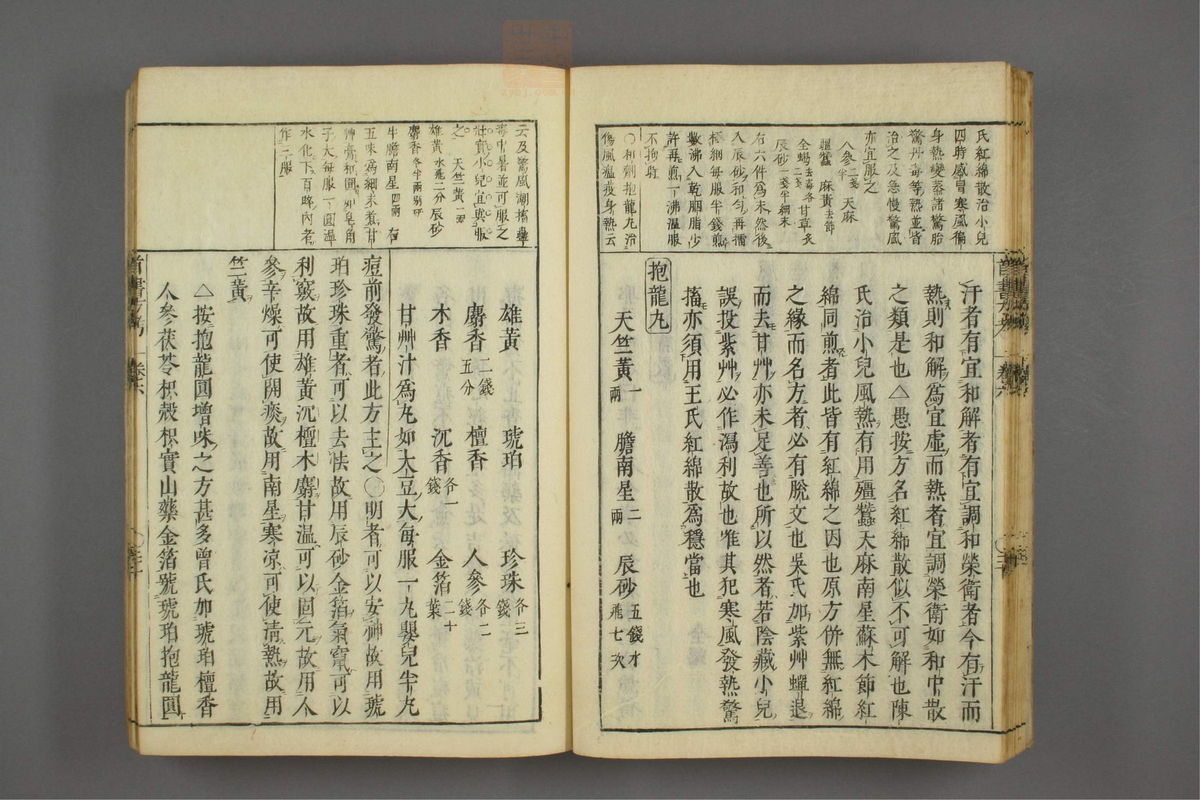 氏紅綿散治小兒
四時感冒寒風傷
身熱變蒸諸驚胎
驚丹毒等熱並皆
治之及急慢驚風
亦宜服之
人參二錢半 天麻
殭蠶 麻黃去節
全蝎二錢去毒各 甘草炙
辰砂一錢半細末
右六件爲末然後
入辰砂和勻再擂
極細每服半錢煎
數沸入乾胭脂少
許再煎一沸溫服
不拘時
○和劑抱龍丸治
傷風溫疫身熱云
汗者有宜和解者有宜調和榮衛者今有汗而
熱則和解爲宜虛而熱者宜調榮衛如和中散
之類是也△愚按方名紅綿散似不可解也陳
氏治小兒風熱有用殭蠶天麻南星蘇木節紅
綿同煎者此皆有紅綿之因也原方倂無紅綿
之緣而名方者必有脫文也吳氏加紫艸蟬退
而去甘艸亦未足善也所以然者若陰藏小兒
誤投紫艸必作瀉利故也唯其犯寒風發熱驚
搐亦須用王氏紅綿散爲穩當也
抱龍丸
天竺黃一兩 膽南星二兩 辰砂五錢才飛七次
云及驚風潮搐蠱
毒中暑並可服之
壯實小兒宜與服
之 天竺黃一兩
雄黃水飛二分 辰砂
麝香各半兩別研
牛膽南星四兩 右
五味爲細末煮甘
艸膏和圓如皂角
子大每服一圓溫
水化下百晬內者
作三服
雄黃 琥珀 珍珠各三錢
麝香二錢五分 檀香 人參各二錢
木香 沉香各一錢 金箔二十葉
甘艸汁爲丸如大豆大每服一丸嬰兒半丸
痘前發驚者此方主之○明者可以安神故用琥
珀珍珠重者可以去怯故用辰砂金箔氣竄可以
利竅故用雄黃沉檀木麝甘溫可以固元故用人
參辛燥可使開痰故用南星寒涼可使清熱故用
竺黃
△按抱龍圓增味之方甚多曾氏加琥珀檀香
人參茯苓枳殼枳實山藥金箔號琥珀抱龍圓